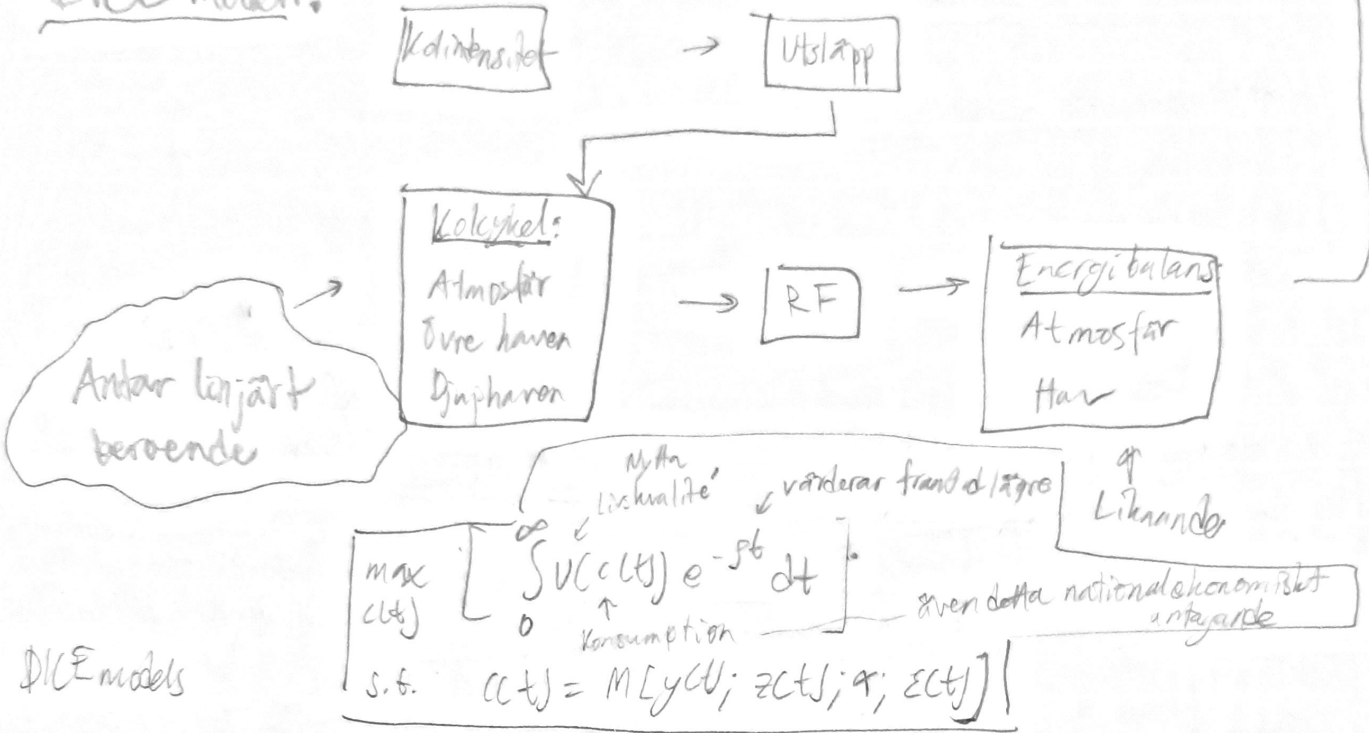 DICE modell:
Kolintensitet → Utsläpp
Kolcykel:
Atmosfär
Övre haven
Djuphaven
→ RF →
Energibalans
Atmosfär
Hav
Antar linjärt
beroende
Liknande
Nytta
Livskvalité
värderar framtid lägre
max
c(t)
∫ U(c(t)) e^{-ρt} dt
∞
0
Konsumption
även detta nationalekonomiskt
antagande
s.t. c(t) = M[y(t); z(t); α; ε(t)]
DICE models